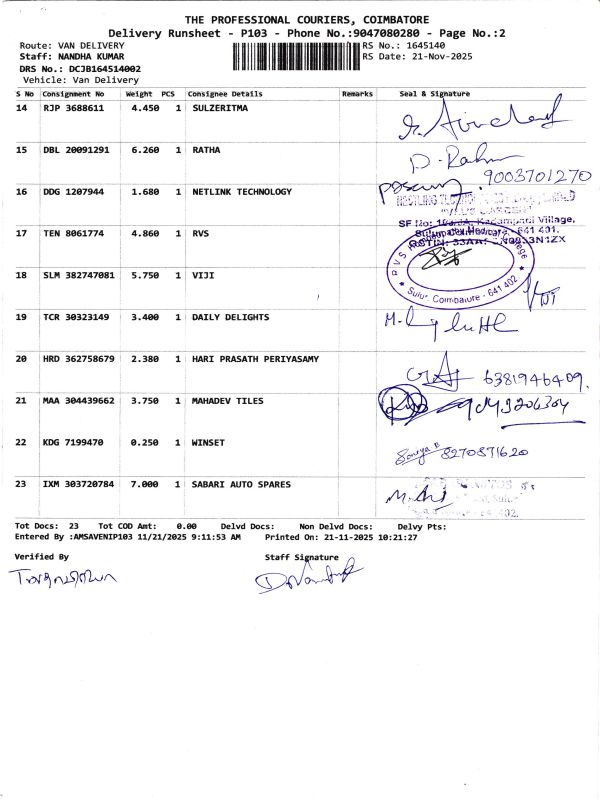 THE PROFESSIONAL COURIERS, COIMBATORE
Delivery Runsheet - P103 - Phone No.:9047080280 - Page No.:2
Route: VAN DELIVERY RS No.: 1645140
Staff: NANDHA KUMAR RS Date: 21-Nov-2025
DRS No.: DCJB164514002
Vehicle: Van Delivery
S No Consignment No Weight PCS Consignee Details Remarks Seal & Signature
14 RJP 3688611 4.450 1 SULZERITMA
15 DBL 20091291 6.260 1 RATHA
9003701270
16 DDG 1207944 1.680 1 NETLINK TECHNOLOGY
Kadampadi Village,
17 TEN 8061774 4.860 1 RVS
18 SLM 382747081 5.750 1 VIJI
Sulur, Coimbatore - 641 402
19 TCR 30323149 3.400 1 DAILY DELIGHTS
20 HRD 362758679 2.380 1 HARI PRASATH PERIYASAMY
6381946409.
21 MAA 304439662 3.750 1 MAHADEV TILES
22 KDG 7199470 0.250 1 WINSET
8270871620
23 IXM 303720784 7.000 1 SABARI AUTO SPARES
Tot Docs: 23 Tot COD Amt: 0.00 Delvd Docs: Non Delvd Docs: Delvy Pts:
Entered By :AMSAVENIP103 11/21/2025 9:11:53 AM Printed On: 21-11-2025 10:21:27
Verified By Staff Signature